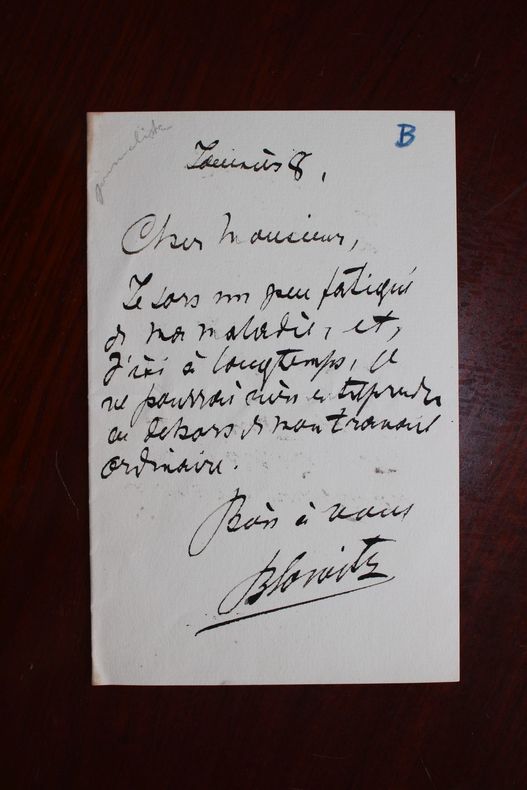 journaliste
B
8,
Cher Monsieur,
Je sors un peu fatigué
de ma maladie, et,
d'ici à longtemps, je
ne pourrai rien entreprendre
en dehors de mon travail
ordinaire.
Bien à vous
Blowitz